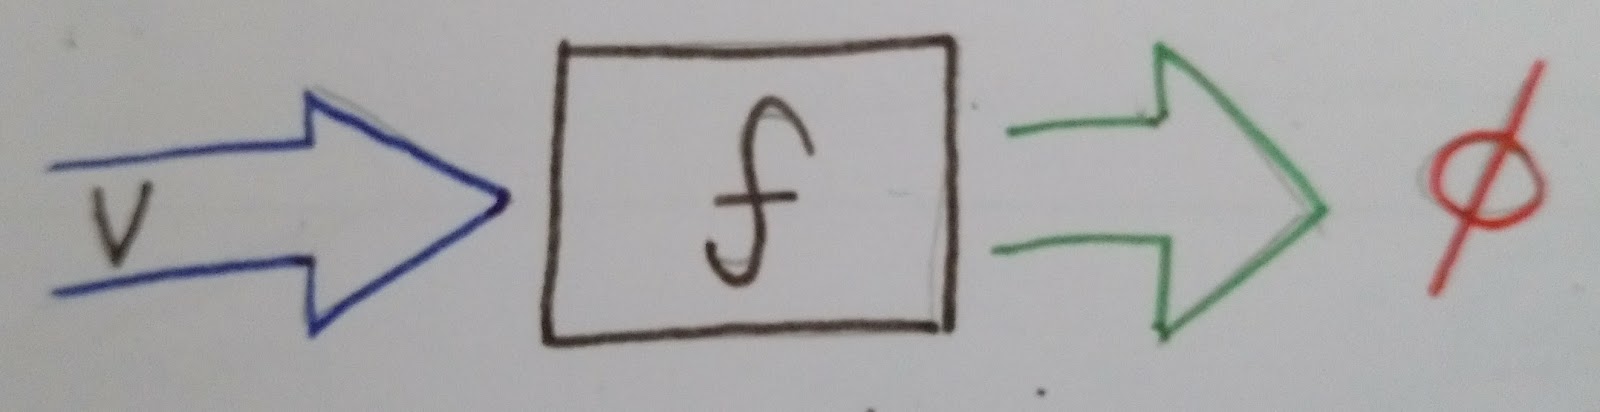 V f ϕ